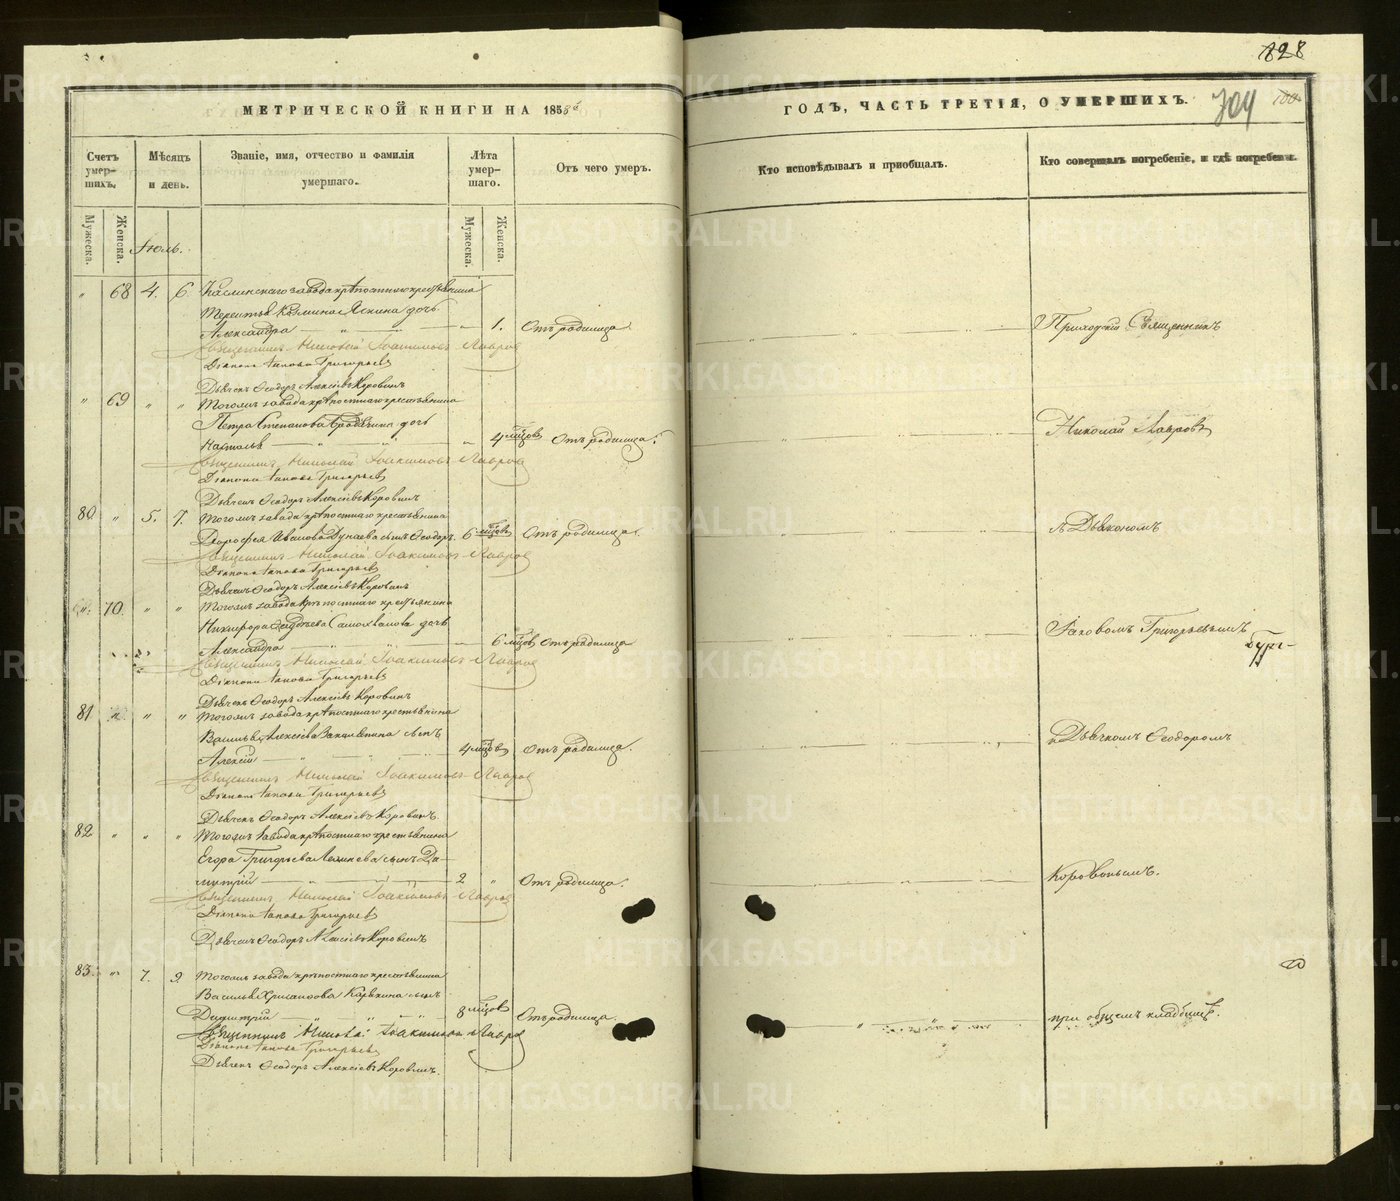 828
МЕТРИЧЕСКОЙ КНИГИ НА 185
ГОДЪ, ЧАСТЬ ТРЕТІЯ, О УМЕРШИХЪ.
704
Счетъ умер-шихъ.
Мѣсяцъ и день.
Званіе, имя, отчество и фамилія умершаго.
Лѣта умер-шаго.
Отъ чего умеръ.
Кто исповѣдывалъ и приобщалъ.
Кто совершалъ погребеніе, и гдѣ погребены.
Мужеска.
Женска.
Мужеска.
Женска.
Іюль.
" 68 4. 6 Каслинскаго завода крѣпостнаго крестьянина
Терентья Козмина Яскина дочь
Александра " 1. Отъ родимца
Приходскій Священникъ
Священникъ Николай Іоакимовъ Лавровъ
Діаконъ Іаковъ Григорьевъ
Дьячекъ Ѳеодоръ Алексіевъ Коровинъ
" 69 " " Тогожъ завода крѣпостнаго крестьянина
Петра Степанова дочь
4 мѣсцовъ Отъ родимца.
Николай Лавровъ
Священникъ Николай Іоакимовъ Лавровъ
Діаконъ Іаковъ Григорьевъ
Дьячекъ Ѳеодоръ Алексіевъ Коровинъ
80. " 5. 7. Тогожъ завода крѣпостнаго крестьянина
Дорофея Иванова Дунаева сынъ Ѳеодоръ 6 мѣсцовъ Отъ родимца.
съ Діакономъ
Священникъ Николай Іоакимовъ Лавровъ
Діаконъ Іаковъ Григорьевъ
Дьячекъ Ѳеодоръ Алексіевъ Коровинъ
70. " " Тогожъ завода крѣпостнаго крестьянина
Никифора Самохвалова дочь
Александра 6 мѣсцовъ Отъ родимца
Іаковомъ Григорьевымъ
Священникъ Николай Іоакимовъ Лавровъ
Діаконъ Іаковъ Григорьевъ
Дьячекъ Ѳеодоръ Алексіевъ Коровинъ
81 " " " Тогожъ завода крѣпостнаго крестьянина
Василья Алексіева сынъ
Алексій 4 мѣсцовъ Отъ родимца.
и Дьячкомъ Ѳеодоромъ
Священникъ Николай Іоакимовъ Лавровъ
Діаконъ Іаковъ Григорьевъ
Дьячекъ Ѳеодоръ Алексіевъ Коровинъ.
82 " " " Тогожъ завода крѣпостнаго крестьянина
Егора Григорьева сынъ Ди-
митрій 2 " Отъ родимца.
Коровинымъ.
Священникъ Николай Іоакимовъ Лавровъ
Діаконъ Іаковъ Григорьевъ
Дьячекъ Ѳеодоръ Алексіевъ Коровинъ
83. " 7. 9. Тогожъ завода крѣпостнаго крестьянина
Василья Хрисанфова сынъ
Димитрій 8 мѣсцовъ Отъ родимца.
при общемъ кладбищѣ.
Священникъ Николай Іоакимовъ Лавровъ
Діаконъ Іаковъ Григорьевъ
Дьячекъ Ѳеодоръ Алексіевъ Коровинъ.
METRIKI.GASO-URAL.RU